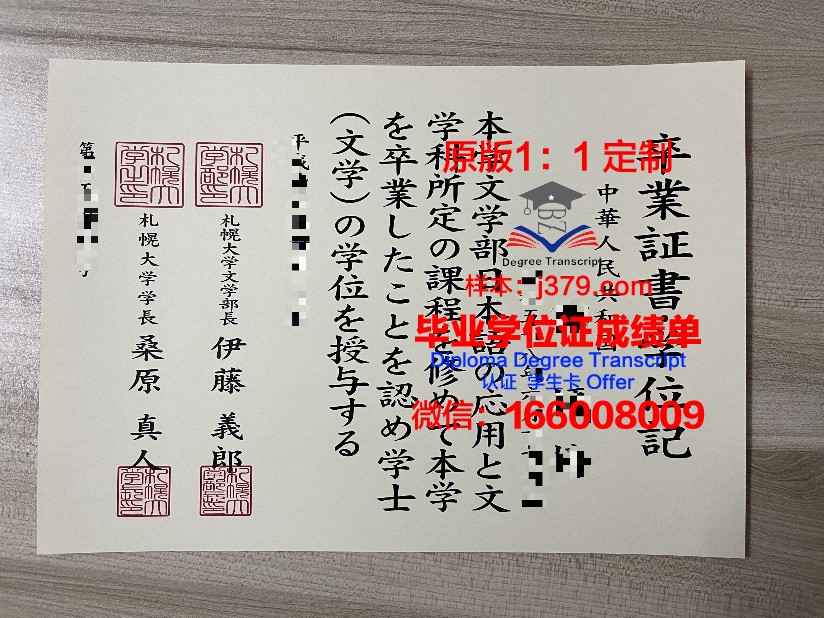 卒業証書・学位記
中華人民共和国
本学文学部日本語の応用と文
学科所定の課程を修めて本学
を卒業したことを認め学士
（文学）の学位を授与する
平成
札幌大学文学部長 伊藤 義郎
札幌大学学長 桑原 真人
第
原版1：1 定制
BZ
Degree Transcript
样本：j379.com
毕业学位证成绩单
Diploma Degree Transcript
认证 学生卡 Offer
微信：166008009